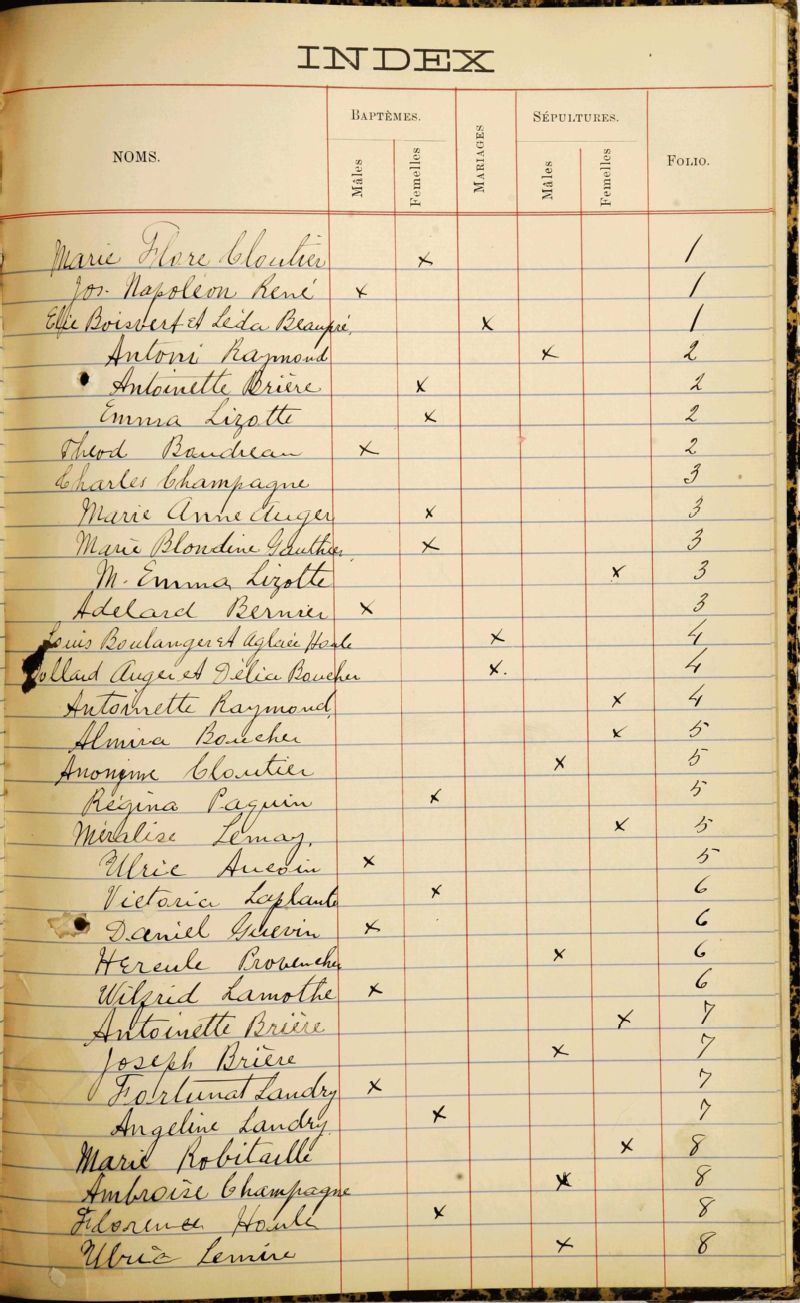 INDEX
NOMS. BAPTÊMES. MARIAGES SÉPULTURES. FOLIO.
Mâles Femelles Mâles Femelles
Marie Flore Cloutier x 1
Jos. Napoléon René x 1
Boisvert et Léda Beaupré, x 1
Antoni Raymond x 2
Antoinette Brière x 2
Emma Lizotte x 2
Théod Baudreau x 2
Charles Champagne 3
Marie Anne Auger x 3
Marie Blondine Gauthier x 3
M. Emma Lizotte x 3
Adelard Bernier x 3
Louis Boulanger et Aglaée Houle x 4
Dollard Auger et Délia Boucher x. 4
Antoinette Raymond, x 4
Almira Boucher x 5
Anonyme Cloutier x 5
Régina Paquin x 5
Méralise Lemay, x 5
Ulric Aucoin x 5
Victoria Laplante x 6
Daniel Guevin x 6
Hercule Provencher x 6
Wilfrid Lamothe x 6
Antoinette Brière x 7
Joseph Brière x 7
Fortunat Landry x 7
Angeline Landry x 7
Marie Robitaille x 8
Ambroise Champagne x 8
Florence Houle x 8
Ulric Lemire x 8